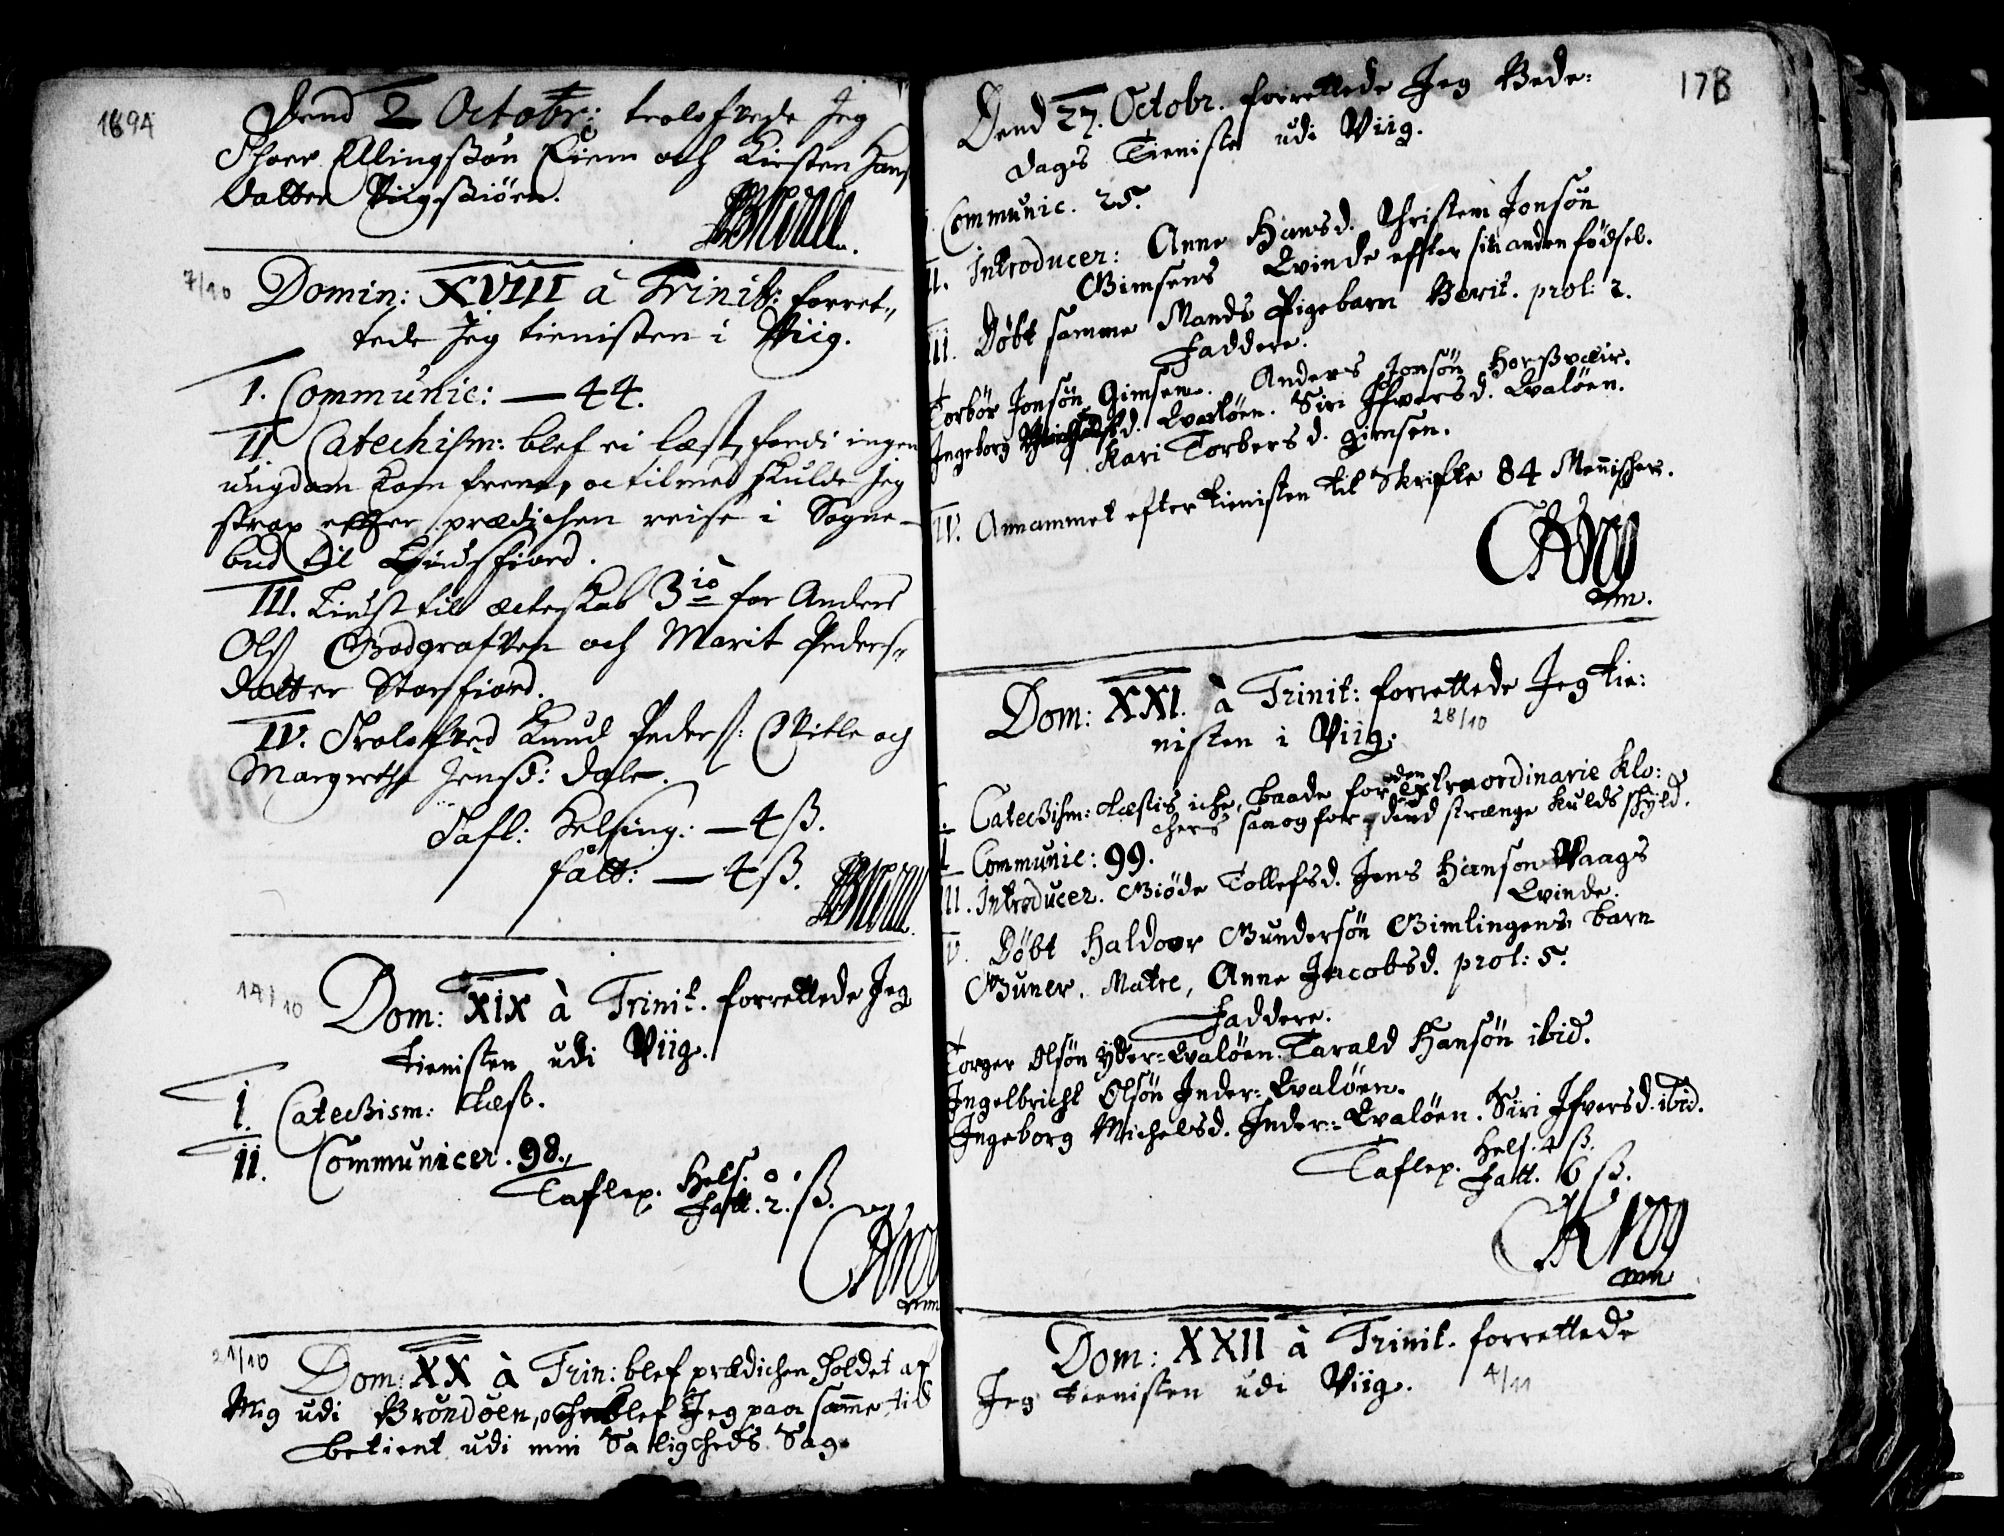 1694
Dend 2 Octobr: trolofvede Jeg
Thoer Ellingssøn Fiem och Kirsten Hans
datter Viigssiøen.
7/10
Domin: XVIII à Trinit: forret„
tede Jeg tienisten i Viig.
I. Communic: — 44.
II Catechism: blef ei læst, fordi ingen
ungdom kom frem, oc tilmed skulde Jeg
strax effter prædichen reise i Sogne-
bud til Bindsfiord.
III. Liust til ecteskab 3io for Anders
Olß Godgrafven och Marit Peders„
datter Storfiord.
IV. Trolofved Knud Peders: Vitle och
Margrethe Jensd: Dale.
Tafl: Helsing: — 4 ß.
fatt: — 4 ß.
14/10
Dom: XIX à Trinit. forrettede Jeg
tienisten udi Viig.
I. Catechism: Læst.
II. Communicer. 98.
Taflep. Hels. 0
Fatt. 2. ß.
Krog
mm
21/10
Dom: XX à Trin: blef prædichen holdet af
Mig udi Brøndøen, och blef Jeg paa samme tid
betient udi min Saligheds Sag.
178
Dend 27. Octobr. forrettede Jeg Bede:
dags Tieniste udi Viig.
Communic. 25.
II. Introducer: Anne Hansd. Christen Jonsøn
Gimsens Qvinde effter sin anden fødsel.
III. Døbt samme Mands Pigebarn Berit. prol: 2.
Faddere.
Torbør Jonsøn Gimsen. Anders Jonsøn Horsvær.
Ingeborg Michelsd. Qvaløen. Siri Ifversd. Qvaløen.
Kari Torbersd. Gimsen.
IV. Annammet efter tienisten til Skrifte 84 Mennischer.
Krog
mm.
Dom: XXI. à Trinit: forrettede Jeg tie:
nisten i Viig.
28/10
Catechism: Læstis iche, baade for den extraordinarie Klo:
chers saa og for dend strænge kulds skyld.
Communic: 99.
III. Introducer. Giøde Tollefsd. Jens Hanson Vaags
Qvinde.
IV. Døbt Haldoer Gundersøn Gimlingens barn
Guner. Matre, Anne Jacobsd. prol: 5.
Faddere.
Torger Olsøn Yder-Qvaløen. Tarald Hansøn ibid.
Ingelbricht Olsøn Inder-Qvaløen.
Ingeborg Michelsd. Inder-Qvaløen. Siri Ifversd. ibid.
Taflep. Hels. 4 ß.
Fatt. 6 ß.
Krog
mm
Dom: XXII à Trinit. forrettede
Jeg tienisten udi Viig.
4/11